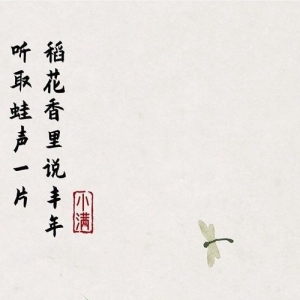 稻花香里说丰年
听取蛙声一片
小满